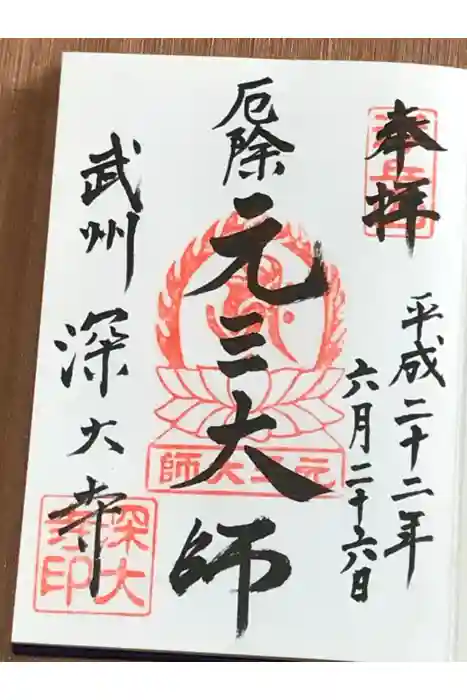 奉拝
平成二十二年
六月二十六日
厄除
元三大師
元三大師
武州
深大寺
深大寺印